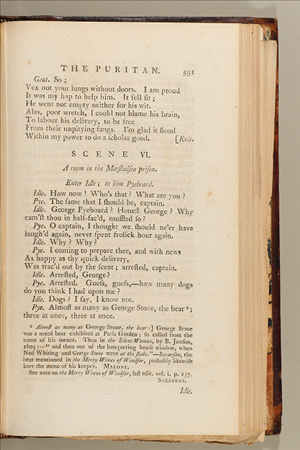 THE PURITAN. 591
Gent. So;
Vex out your lungs without doors. I am proud
It was my hap to help him. It fell fit;
He went not empty neither for his wit.
Alas, poor wretch, I could not blame his brain,
To labour his delivery, to be free
From their unpitying fangs. I'm glad it stood
Within my power to do a scholar good. [Exit.
SCENE VI.
A room in the Marshalsea prison.
Enter Idle; to him Pyeboard.
Idle. How now! Who's that? What are you?
Pye. The same that I should be, captain.
Idle. George Pyeboard? Honest George? Why
cam'st thou in half-fac'd, muffled so?
Pye. O captain, I thought we should ne'er have
laugh'd again, never spent frolick hour again.
Idle. Why? Why?
Pye. I coming to prepare thee, and with news
As happy as thy quick delivery,
Was trac'd out by the scent; arrested, captain.
Idle. Arrested, George?
Pye. Arrested. Guess, guess,—how many dogs
do you think I had upon me?
Idle. Dogs? I say, I know not.
Pye. Almost as many as George Stone, the bear*;
three at once, three at once.
* Almost as many as George Stone, the bear:] George Stone
was a noted bear exhibited at Paris Garden; so called from the
name of his owner. Thus in the Silent Woman, by B. Jonson,
1609:—" and then out of the banqueting house window, when
Ned Whiting and George Stone were at the stake."—Sacarson, the
bear mentioned in the Merry Wives of Windsor, probably likewise
bore the name of his keeper. MALONE.
See note on the Merry Wives of Windsor, last edit. vol. i. p. 237.
STEEVENS.
Idle.